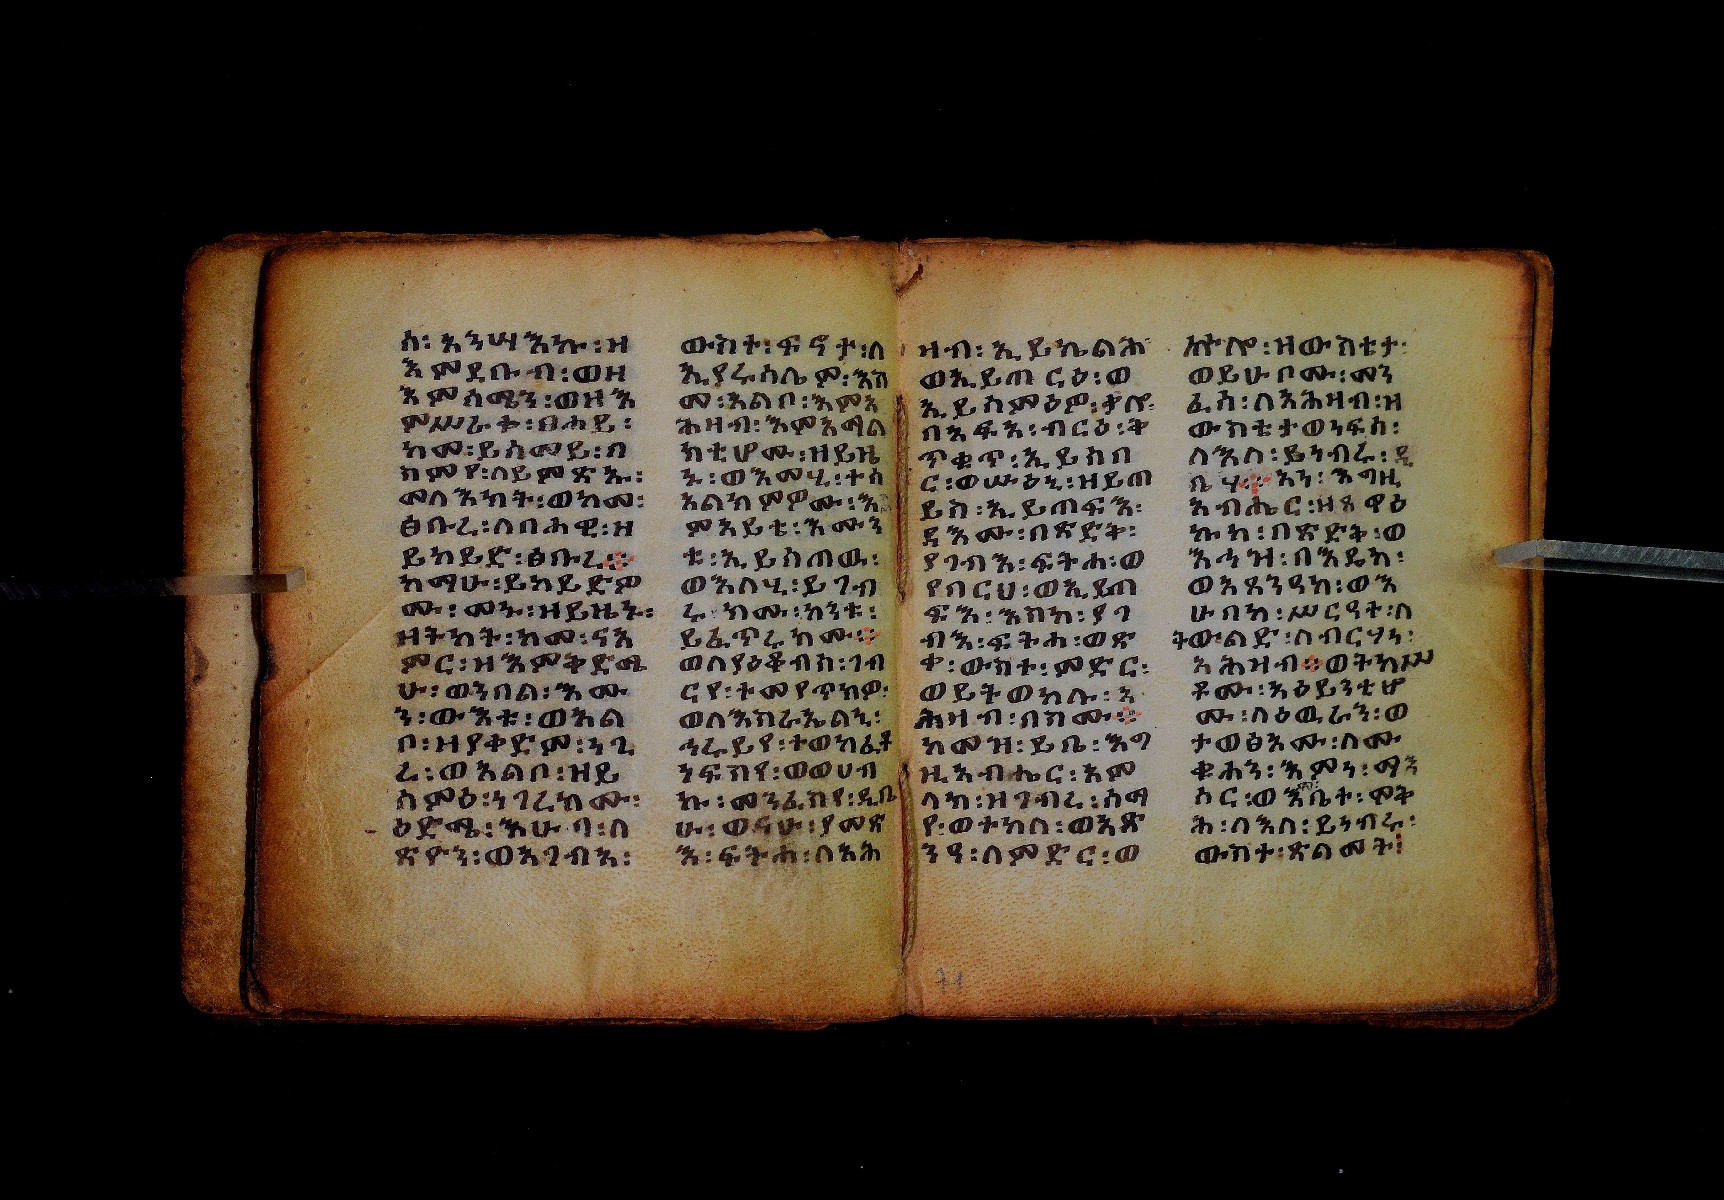 ሰ፡ አንሣእኩ፡ ዘ
እምደቡብ፡ ወዘ
እምሰሜን፡ ወዘእ
ምሥራቀ፡ ፀሐይ፡
ከመ፡ ይሰመይ፡ በ
ስምየ፡ ለይምጽኡ፡
መለእክት፡ ወከመ፡
ፅቡረ፡ ለብሓዊ፡ ዘ
ይከይድ፡ ፅቡረ።
ከማሁ፡ ይከይድዎ
ሙ፡ መኑ፡ ዘይዜኑ፡
ዘትካት፡ ከመ፡ ናእ
ምር፡ ዘእምቅድሜ
ሁ፡ ወንበል፡ እሙ
ን፡ ውእቱ፡ ወአል
ቦ፡ ዘያቀድም፡ ነጊ
ረ፡ ወአልቦ፡ ዘይ
ሰምዕ፡ ነገረክሙ፡
ዕድሜ፡ እሁባ፡ ለ
ጽዮን፡ ወእገብእ፡
ውስተ፡ ፍኖታ፡ ለ
ኢየሩሳሌም፡ እስ
መ፡ አልቦ፡ እምአ
ሕዛብ፡ እምአማል
ክቲሆሙ፡ ዘይዜ
ኑ፡ ወእመሂ፡ ተሰ
አልክምዎሙ፡ እ
ምአይቴ፡ እሙን
ቱ፡ ኢይሰጠዉ፡
ወእለሂ፡ ይገብ
ሩ ክሙ፡ ከንቱ፡
ይፈጥሩክሙ።
ወለያዕቆብሰ፡ ገብ
ርየ፡ ተመየጥክዎ፡
ወለእስራኤልኒ፡
ኅሩይየ፡ ተወክፈቶ
ነፍስየ፡ ወወሀብ
ኩ፡ መንፈስየ፡ ዲቤ
ሁ፡ ወናሁ፡ ያመጽ
እ፡ ፍትሐ፡ ለአሕ
ዛብ፡ ኢይኬልሕ
ወኢይጠርዕ፡ ወ
ኢይሰምዕዎ፡ ቃሎ፡
በአፍአ፡ ብርዕ፡ ቅ
ጥቁጥ፡ ኢይሰብ
ር፡ ወሡዕኒ፡ ዘይጠ
ይስ፡ ኢይጠፍእ፡
ዳእሙ፡ በጽድቅ፡
ያገብእ፡ ፍትሐ፡ ወ
የበርህ፡ ወኢይጠ
ፍእ፡ እስከ፡ ያገ
ብእ፡ ፍትሐ፡ ወጽ
ቀ፡ ውስተ፡ ምድር፡
ወይትወከሉ፡ አ
ሕዛብ፡ በስሙ።
ከመዝ፡ ይቤ፡ እግ
ዚአብሔር፡ አም
ላክ፡ ዘገብረ፡ ሰማ
የ፡ ወተከለ፡ ወአጽ
ንዓ፡ ለምድር፡ ወ
ኵሎ፡ ዘውስቴታ፡
ወይሁቦሙ፡ መን
ፈሰ፡ ለአሕዛብ፡ ዘ
ውስቴታ ወነፍሰ፡
ለእለ፡ ይነብሩ፡ ዲ
ቤሃ። አነ፡ እግዚ
አብሔር፡ ዘጸዋዕ
ኩከ፡ በጽድቅ፡ ወ
እኅዝ፡ በእዴከ፡
ወአጸንዓከ፡ ወእ
ሁበከ፡ ሥርዓተ፡ ለ
ትውልድ፡ ለብርሃነ፡
አሕዛብ። ወትክሥ
ቶሙ፡ አዕይንቲሆ
ሙ፡ ለዕዉራን፡ ወ
ታወፅአሙ፡ ለሙ
ቁሐን፡ እምነ፡ ማእ
ሰር፡ ወእምቤተ፡ ሞቅ
ሕ፡ ለእለ፡ ይነብሩ፡
ውስተ፡ ጽልመት፡
71